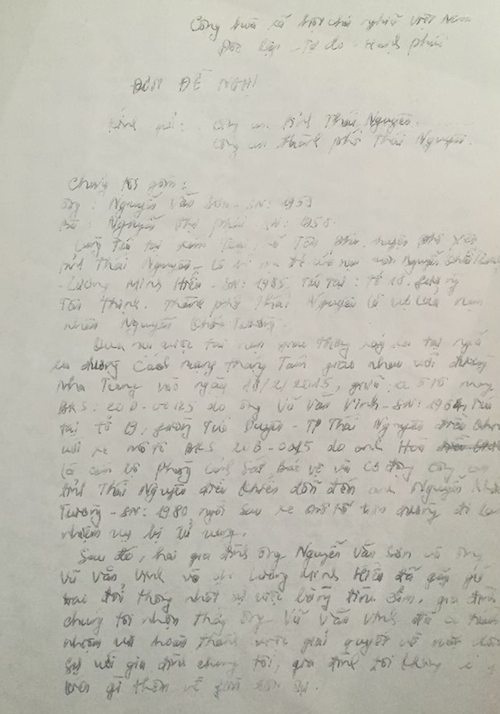 Cộng hòa xã hội chủ nghĩa Việt Nam
Độc lập - Tự do - Hạnh phúc
ĐƠN ĐỀ NGHỊ
Kính gửi: Công an tỉnh Thái Nguyên.
Công an thành phố Thái Nguyên.
Chúng tôi gồm:
Ông: Nguyễn Văn Sơn - SN: 1953
Bà: Nguyễn Thị - SN: 1950.
Cùng trú tại xóm xã Tân Phú, huyện Phổ Yên
tỉnh Thái Nguyên - Là bố mẹ đẻ của nạn nhân Nguyễn
- Lương Minh Hiền - SN: 1985. Trú tại: Tổ 10, phường
Tân Thịnh, thành phố Thái Nguyên là vợ của nạn
nhân Nguyễn Tương.
Qua sự việc tai nạn giao thông xảy ra tại ngã
ba đường Cách mạng tháng Tám giao nhau với đường
Nha Trang vào ngày /2/2015, giữa xe ô tô mang
BKS: 20 do ông Vũ Văn Vinh - SN: trú
tại tổ phường Túc Duyên - TP Thái Nguyên điều khiển
với xe mô tô BKS do anh
là cán bộ Phòng Cảnh Sát Bảo vệ và Cơ động Công an
tỉnh Thái Nguyên điều khiển dẫn đến anh Nguyễn
Tương - SN: 1980 ngồi sau xe mô tô trên đường đi làm
nhiệm vụ bị tử vong.
Sau đó, hai gia đình ông Nguyễn Văn Sơn và ông
Vũ Văn Vinh và chị Lương Minh Hiền đã gặp gỡ
trao đổi thống nhất sự việc bằng tình cảm, gia đình
chúng tôi nhận thấy ông Vũ Văn Vinh đã có trách
nhiệm và hoàn thành việc giải quyết về mặt dân
sự với gia đình chúng tôi, gia đình tôi không có ý
kiến gì thêm về dân sự.